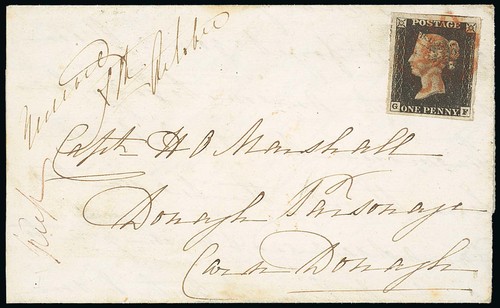 POSTAGE
G F
ONE PENNY
October
Capt. H O Marshall
Donagh Parsonage
Carn Donagh